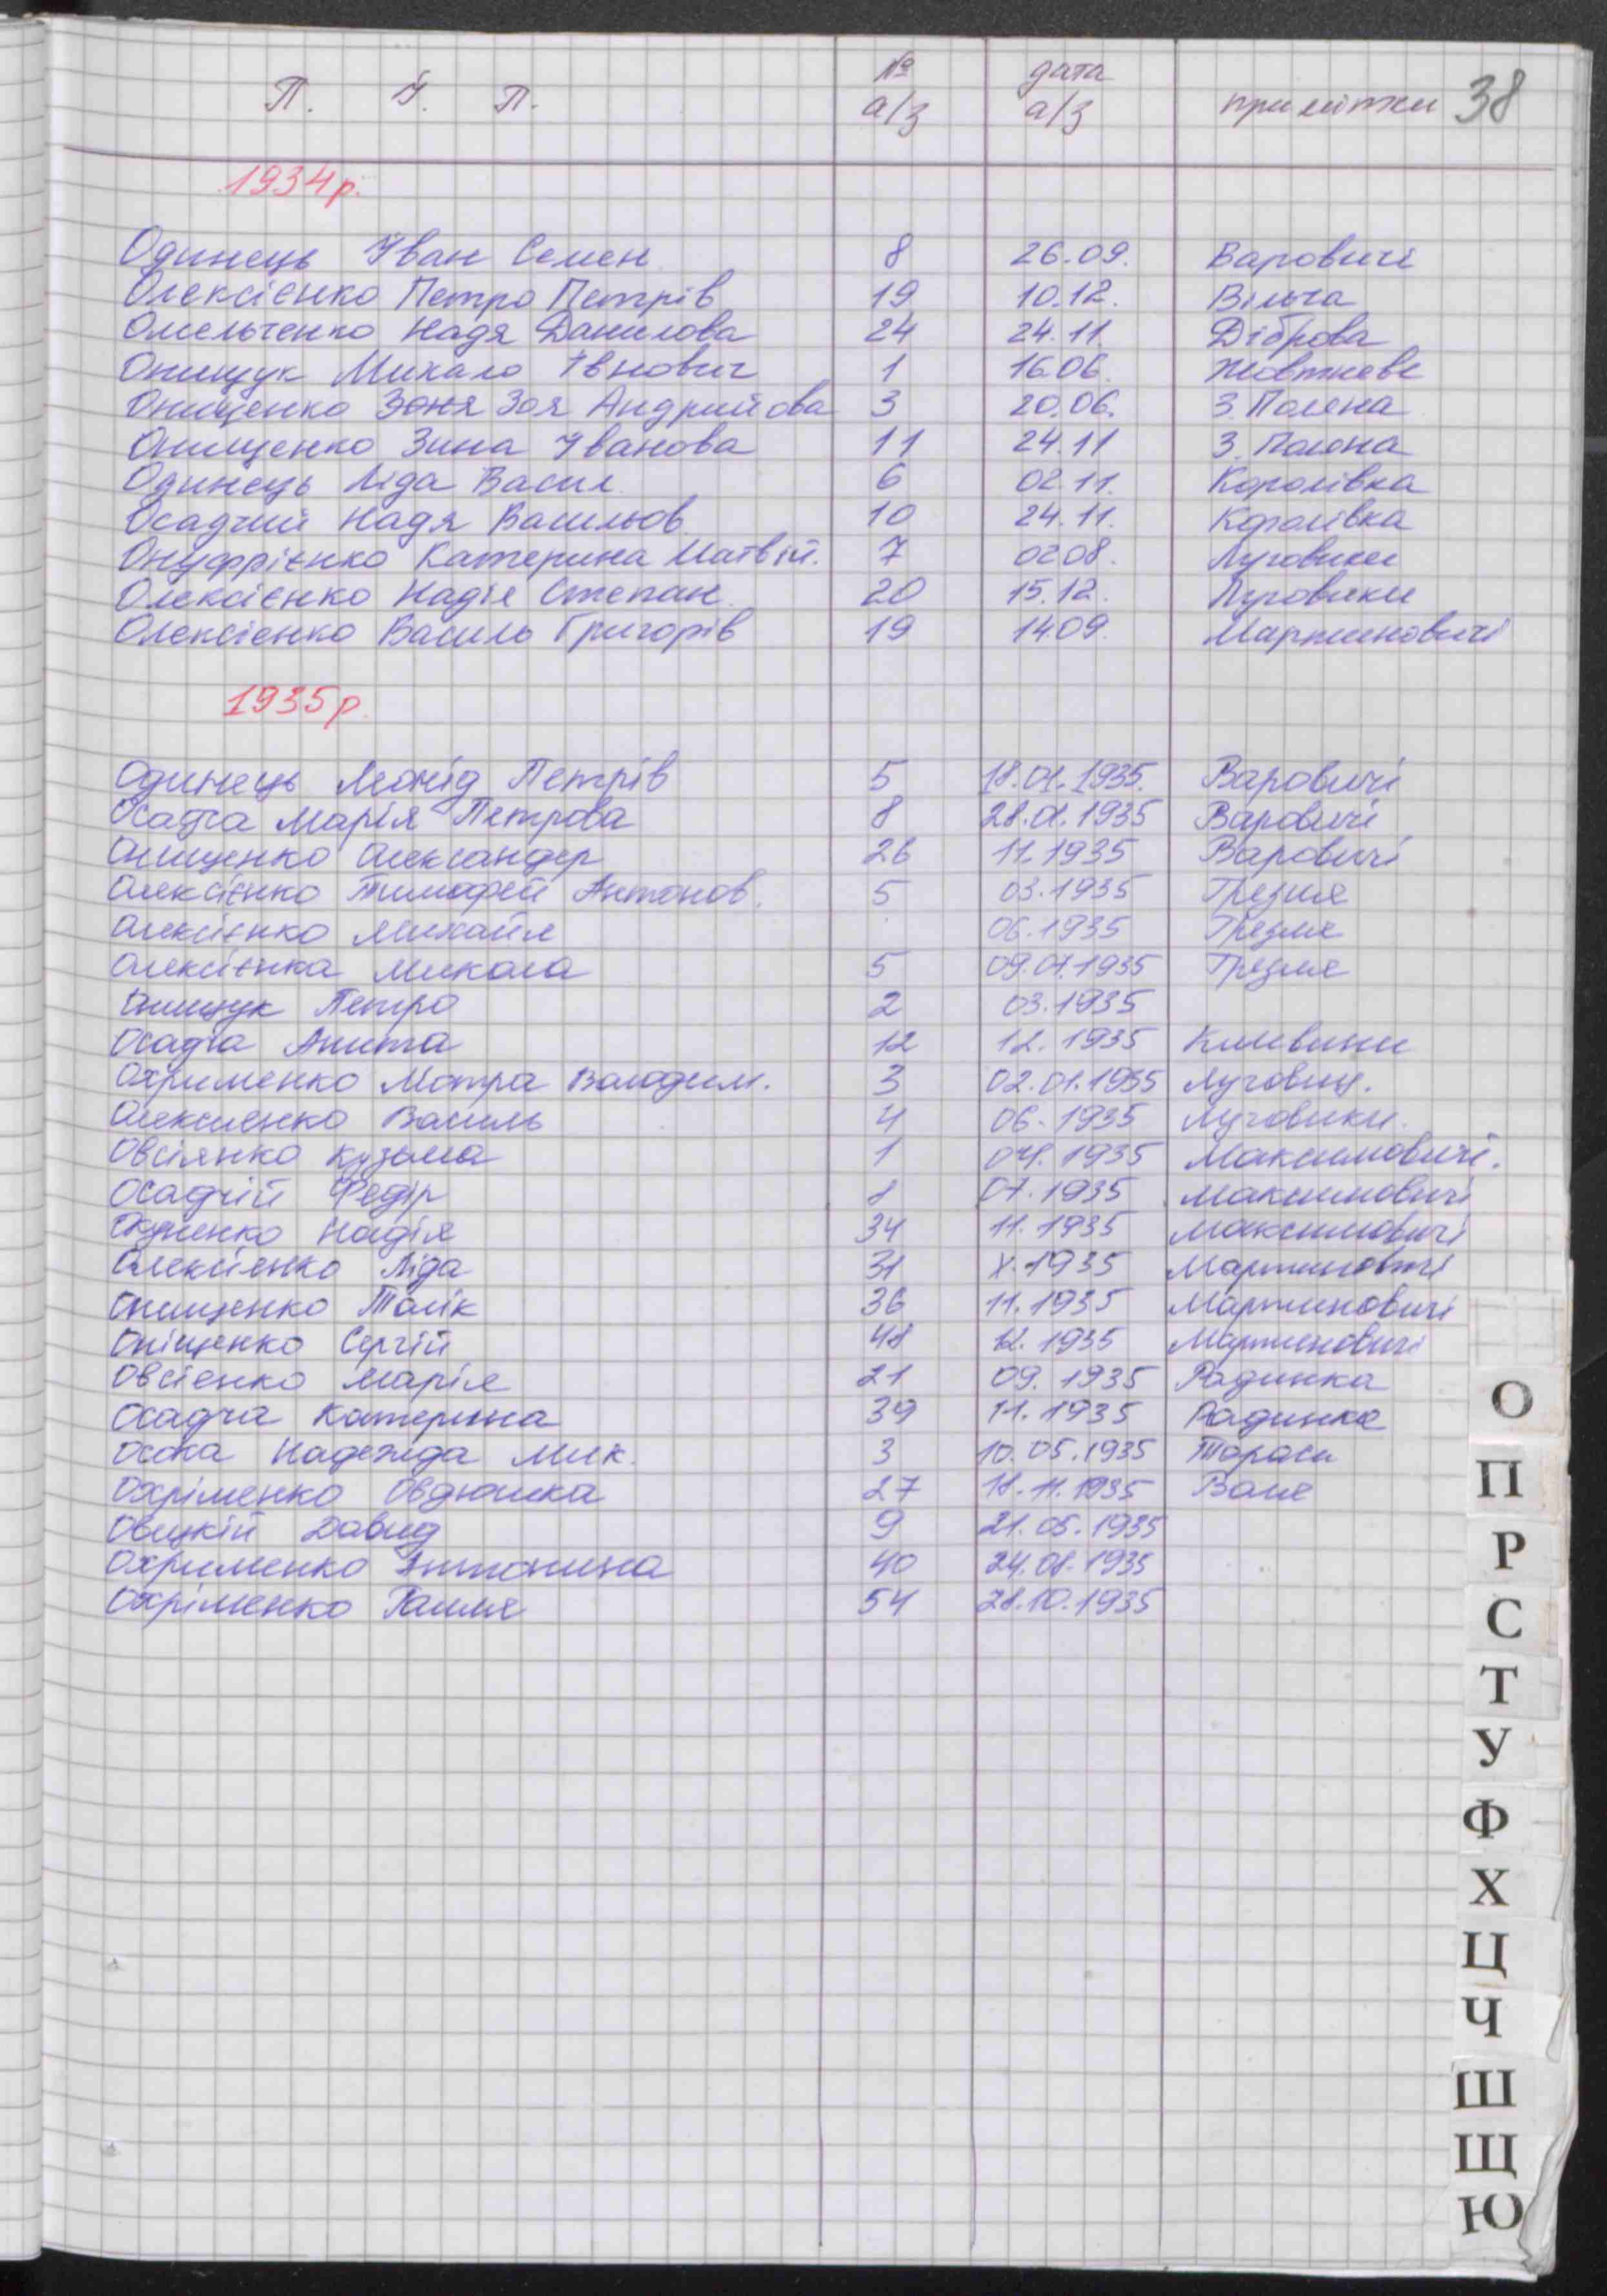 П. І. П. № а/з дата а/з примітки 38
1934р.
Одинець Іван Семен. 8 26.09. Варовичі
Олексієнко Петро Петрів 19 10.12. Вільча
Омельченко Надя Данилова 24 24.11. Діброва
Онищук Михало Івнович 1 16.06. Жовтневе
Онищенко Зоня Зоя Андрийова 3 20.06. З. Поляна
Онищенко Зина Іванова 11 24.11 З. Поляна
Одинець Ліда Васил. 6 02.11. Королівка
Осадчий Надя Васильов. 10 24.11. Королівка
Онуфрієнко Катерина Матвій. 7 02 08. Луговики
Олексієнко Надія Степан. 20 15.12. Луговики
Олексієнко Василь Григорів 19 14 09. Мартиновичі
1935р.
Одинець Леонід Петрів 5 18.01.1935. Варовичі
Осадча Марія Петрова 8 28.01.1935 Варовичі
Онищенко Олександер 26 11.1935 Варовичі
Олексієнко Тимофей Антонов. 5 03.1935 Грезля
Олексієнко Михайл 06.1935 Грезля
Олексієнка Микола 5 09.07.1935 Грезля
Онищук Петро 2 03.1935
Осадча Анюта 12 12.1935 Кливини
Охрименко Мотра Володим. 3 02.01.1935 Луговиц.
Олексиенко Василь 4 06.1935 Луговики.
Овсіянко Кузьма 1 04.1935 Максимовичі.
Осадчій Федір 8 07.1935 Максимовичі
Надія 34 11.1935 Максимовичі
Олексієнко Ліда 31 X.1935 Мартиновичі
Онищенко Толік 36 11.1935 Мартиновичі
Оніщенко Сергій 48 12.1935 Мартиновичі
Овсієнко Марія 21 09.1935 Радинка
Осадча Катерина 39 11.1935 Радинка
Надежда Мик. 3 10.05.1935 Тараси
Охріменко Овдюшка 27 18.11.1935
Овицкій Давид 9 21.05.1935
Охрименко Антонина 40 24.08.1935
Охріменко 54 28.10.1935
О
П
Р
С
Т
У
Ф
Х
Ц
Ч
Ш
Щ
Ю